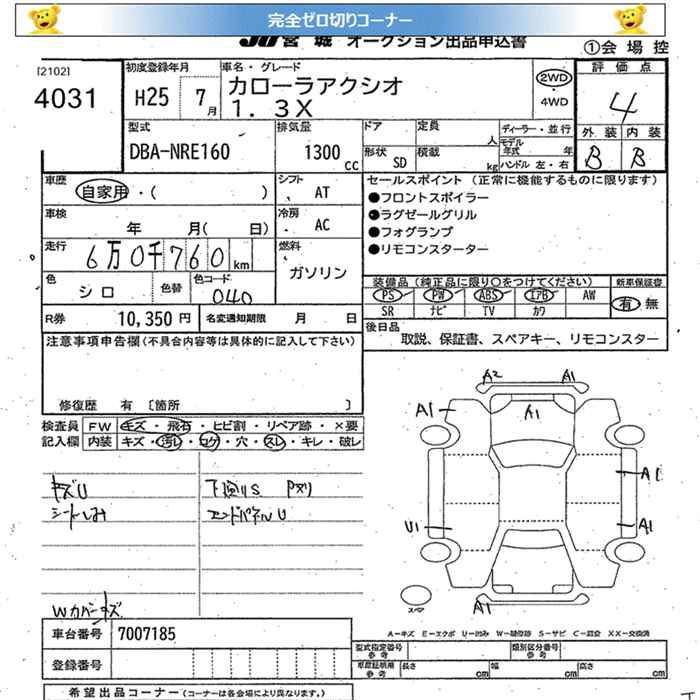 完全ゼロ切りコーナー
JU宮城 オークション出品申込書
①会場控
[2102]
4031
初度登録年月
H25 7月
車名・グレード
カローラアクシオ
1.3X
2WD
・4WD
評価点
4
外装 内装
B B
型式
DBA-NRE160
排気量
1300cc
ドア
形状 SD
定員 人
積載 kg
ディーラー・並行
モデル年式 年
ハンドル 左・右
車歴
自家用・( )
シフト
AT
車検
年 月( 日)
冷房
AC
走行
6万0千760km
燃料
ガソリン
色
シロ
色替
色コード
040
R券
10,350円
名変通知期限 月 日
セールスポイント (正常に機能するものに限ります)
●フロントスポイラー
●ラグゼールグリル
●フォグランプ
●リモコンスターター
装備品 (純正品に限り○をつけてください)
新車保証書
PS PW ABS エアB AW
SR ナビ TV カワ
有 無
後日品
取説、保証書、スペアキー、リモコンスター
注意事項申告欄(不具合内容等は具体的に記入して下さい)
修復歴 有 〔箇所 〕
検査員 FW キズ・飛石・ヒビ割・リペア跡・×要
記入欄 内装 キズ・汚れ・コゲ・穴・スレ・キレ・破レ
キズU
シートしみ
下廻りS
エンドパネルU
Wカバーキズ
A2 A1
A1 A1
A1
U1 A1
A1
スペア
A-キズ E-エクボ U-凹み W-補修跡 S-サビ C-腐食 XX-交換済
車台番号
7007185
登録番号
型式指定番号 参考
類別区分番号 参考
車庫証明用 参考 長さ cm 幅 cm 高さ cm
希望出品コーナー(コーナーは各会場により異なります。)